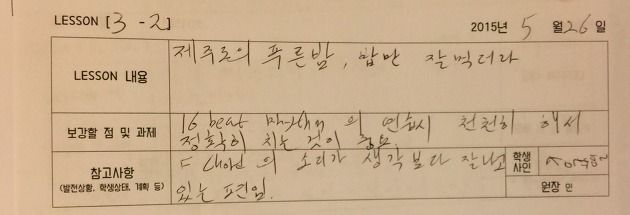 LESSON [3-2] 2015년 5 월 26 일
LESSON 내용
제주도의 푸른밤, 밥만 잘먹더라
보강할 점 및 과제
16 beat 의 연습시 천천히 해서
정확히 치는것이 중요.
참고사항
(발전상황, 학생상태, 계획 등)
F chord 의 소리가 생각보다 잘나고
있는 편임.
학생
사인
원장 인